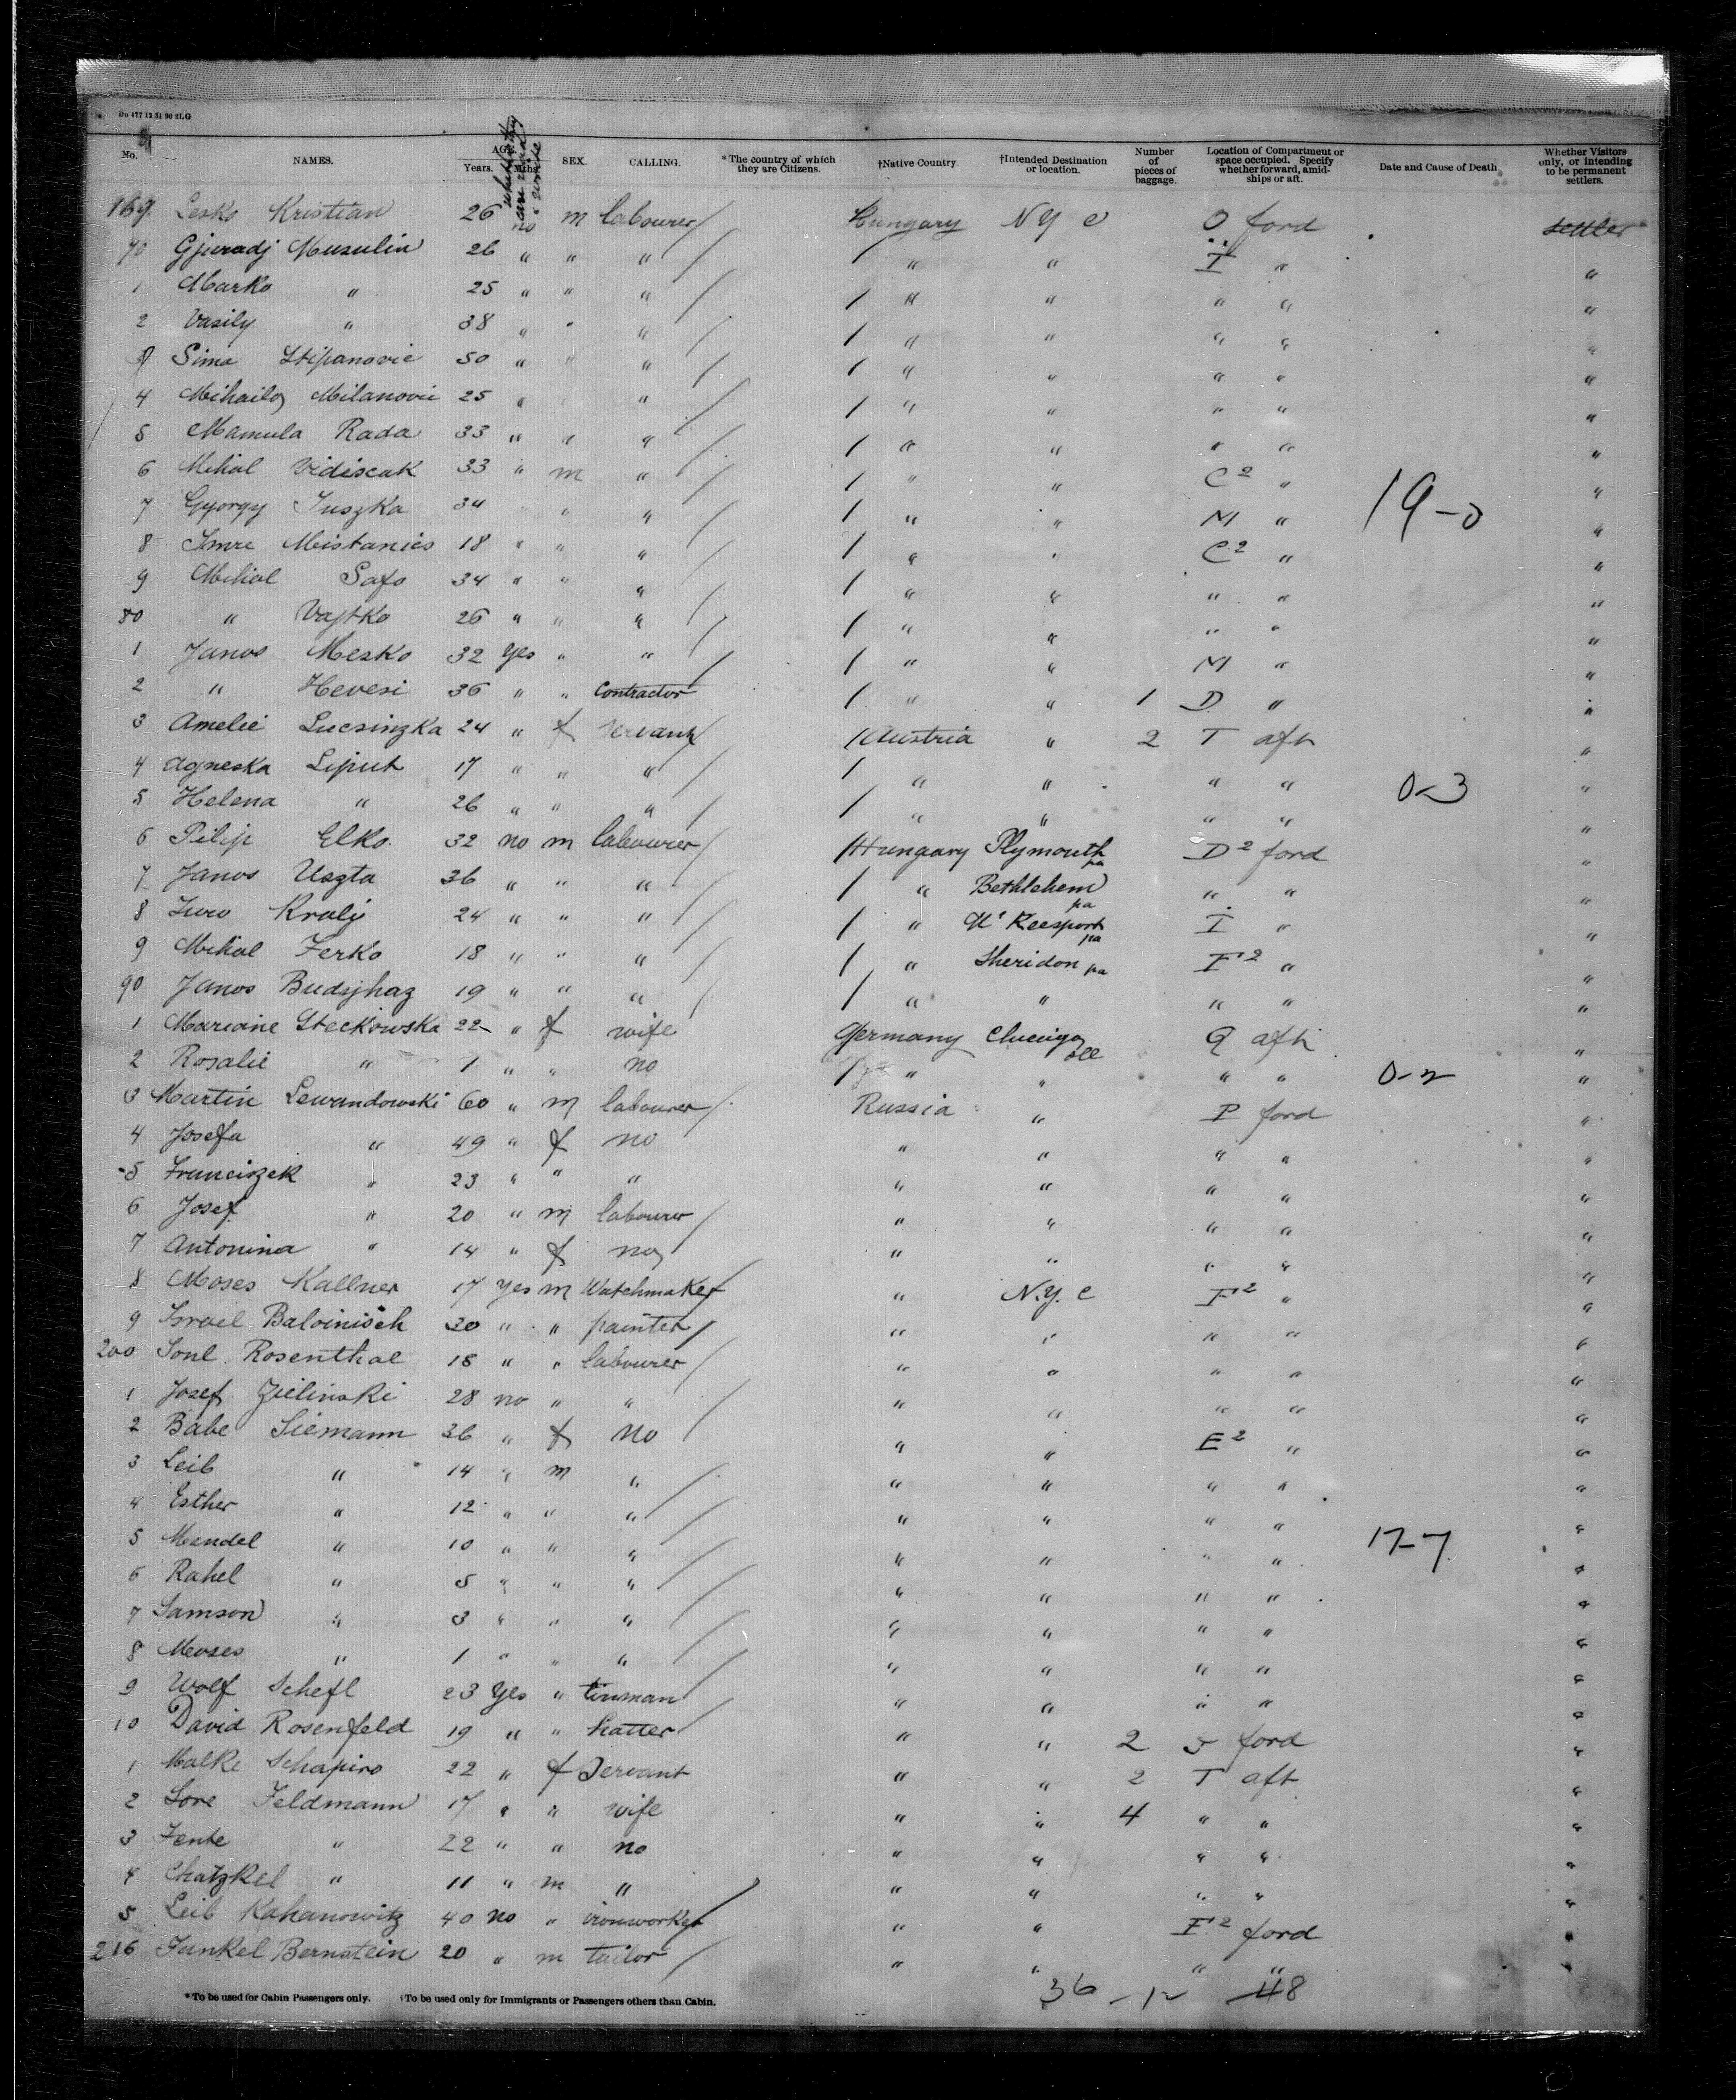 Do 477 12 31 90 2LG
No. NAMES. AGE. Years. Mths. whether they can read & write SEX. CALLING. *The country of which they are Citizens. †Native Country †Intended Destination or location. Number of pieces of baggage. Location of Compartment or space occupied. Specify whether forward, amidships or aft. Date and Cause of Death Whether Visitors only, or intending to be permanent settlers.
169 Lesko Kristian 26 no m labourer / Hungary N Y C O ford settler
70 Gjuradj Musulin 26 " " " / 1 " " I " "
1 Marko " 25 " " " / 1 " " " " "
2 Vasily " 38 " " " / 1 " " " " "
3 Sima Stipanovic 50 " " " / 1 " " " " "
4 Mihailo Milanovic 25 " " / 1 " " " " "
5 Mamula Rada 33 " " " / 1 " " " " "
6 Mihal Vidiscak 33 " m " / 1 " " C2 " "
7 Gyorgy Juszka 34 " " / 1 " " M " 19-0 "
8 Imre Mistanics 18 " " " / 1 " " C2 " "
9 Mihal Safo 34 " " " / 1 " " " " "
80 " Vajtko 26 " " " / 1 " " " " "
1 Janos Mezko 32 Yes " " / 1 " " M " "
2 " Hevesi 36 " " Contractor 1 " " 1 D " "
3 Amelie Lucsinzka 24 " f servant / 1 Austria " 2 T aft "
4 Agneska Liput 17 " " " / 1 " " " " 0-3 "
5 Helena " 26 " " " / 1 " " " " "
6 Pilip Elko 32 no m labourer / 1 Hungary Plymouth pa D2 ford "
7 Janos Uszta 36 " " " / 1 " Bethlehem pa " " "
8 Juro Kralj 24 " " " / 1 " Mc Keesport pa I " "
9 Mihal Ferko 18 " " " / 1 " Sheridon pa F2 " "
90 Janos Budsjhaz 19 " " " / 1 " " " " "
1 Mariane Steckowska 22 " f wife Germany Chicago Ill Q aft "
2 Rosalie " 1 " " no 1 " " " " 0-2 "
3 Martin Lewandowski 60 " m labourer / Russia " P ford "
4 Josefa " 49 " f no " " " " "
5 Franciszek " 23 " " " " " " " "
6 Josef " 20 " m labourer / " " " " "
7 Antonina " 14 " f no " " " " "
8 Moses Kallner 17 Yes m Watchmaker / " N.Y. C F2 " "
9 Israel Baloinisch 30 " " painter / " " " " "
200 Sonl Rosenthal 18 " " labourer / " " " " "
1 Josef Zielinski 28 no " " / " " " " "
2 Babe Siemann 36 " f no " " E2 " "
3 Leib " 14 " m " / " " " " "
4 Esther " 12 " " " / " " " " "
5 Mendel " 10 " " " / " " " " 17-7 "
6 Rahel " 5 " " " / " " " " "
7 Samson " 3 " " " / " " " " "
8 Moses " 1 " " " / " " " " "
9 Wolf Schefl 23 Yes " tinsman / " " " " "
10 David Rosenfeld 19 " " hatter / " " 2 ford "
1 Malke Schapiro 22 " f Servant " " 2 T aft "
2 Sore Feldmann 17 " " wife " " 4 " " "
3 Fente " 22 " " no " " " " "
4 Chatzkel " 11 " m " " " " " "
5 Leib Kahanowitz 40 no " ironworker / " " F2 ford "
216 Junkel Bernstein 20 " m tailor / " " " " "
36 - 12 48
*To be used for Cabin Passengers only. †To be used only for Immigrants or Passengers others than Cabin.